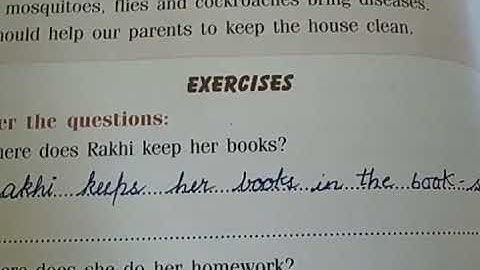 mosquitoes, flies and cockroaches bring diseases.
hould help our parents to keep the house clean.
EXERCISES
er the questions:
here does Rakhi keep her books?
akhi keeps her books in the book-s
ere does she do her homework?